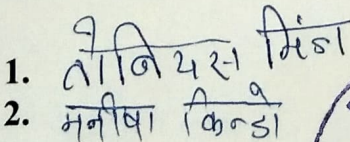 1. तोनियस मिंज
2. मनीषा किन्डो